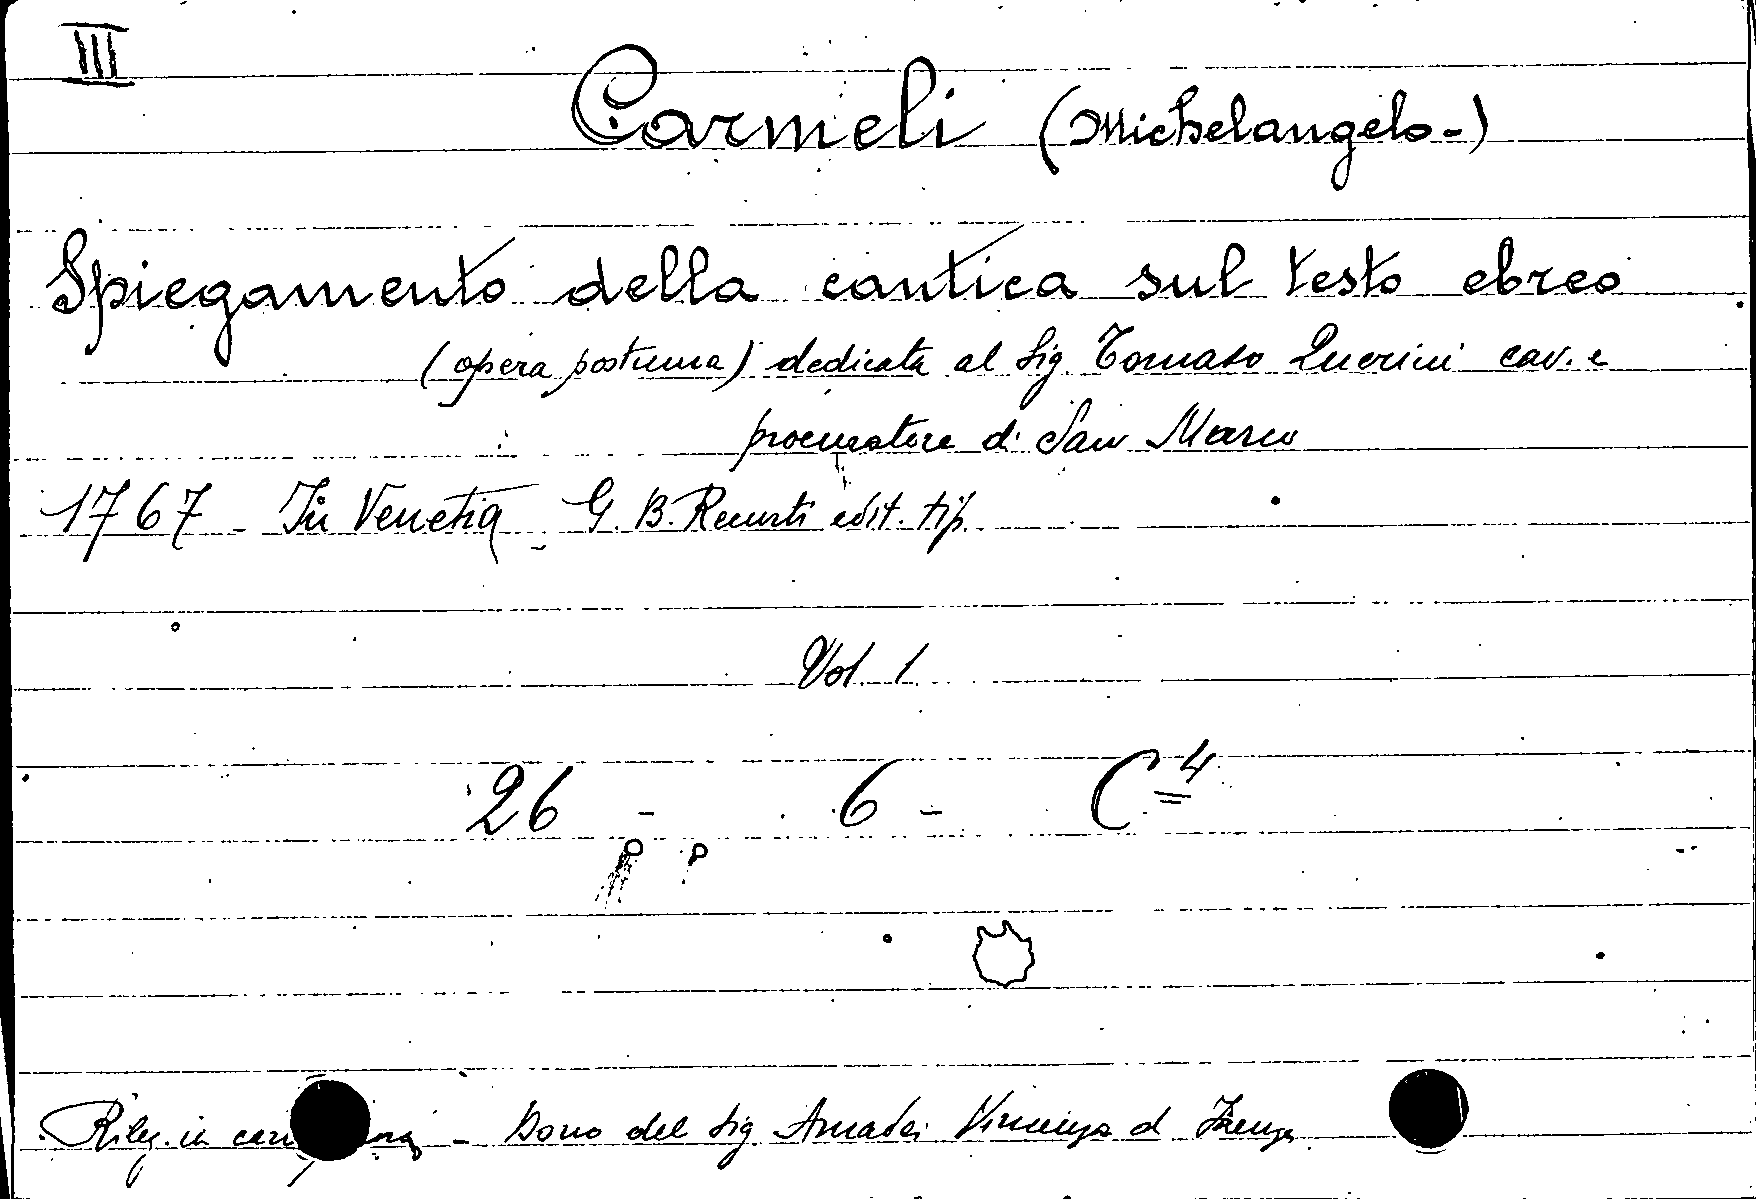 III
Carmeli (Michelangelo-)
Spiegamento della cantica sul testo ebreo
(opera postuma) dedicata al Sig. Tomaso Querini cav. e
procuratore di San Marco
1767 - In Venetia - G. B. Recurti edit. tip.
Vol. 1
26 - 6 - C 4
Rileg. in - Dono del Sig. Amadei Vincenzo d